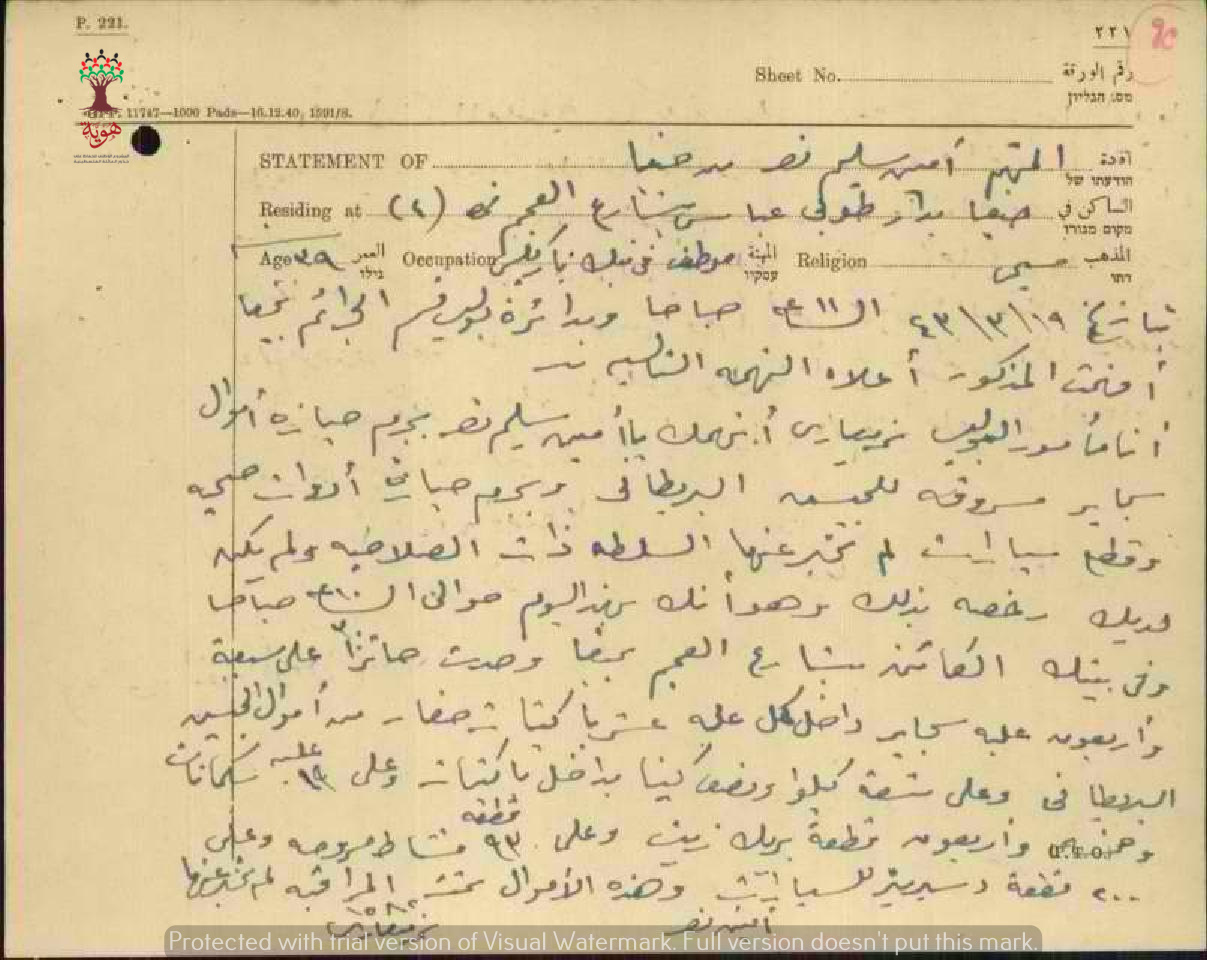 P. 221.
٢٢١
Sheet No. رقم الورقة
מס. הגליון
11747—1000 Pads—16.12.40, 1591/8.
هوية
STATEMENT OF المتهم أمين سليم نصر من حيفا افادة
הודעתו של
Residing at حيفا بدار طوبى عباس بشارع العجم نمره (٤) الساكن في
מקום מגוריו
Age ٣٩ العمر Occupation موظف في بنك باركليس المهنة Religion مسيحي المذهب
גילו עסקיו דתו
بتاريخ ١٩\٣\٤٣ الساعة ١١ صباحا وبدائرة بوليس قسم الجرائم بحيفا
أفهمت المذكور أعلاه التهمه التاليه
أنا مأمور البوليس أتهمك يا أمين سليم نصر بجرم حيازة أموال
سجاير مسروقه للجيش البريطاني وبجرم حيازة أدوات صحيه
وقطع سيارات لم تخبر عنها السلطه ذات الصلاحيه ولم يكن
لديك رخصه بذلك وهو أنك بهذا اليوم حوالي الساعة ١٠ صباحا
وفي بيتك الكائن بشارع العجم بحيفا وجدت حائزا على سبعة
وأربعون علبه سجاير داخل كل علبه عشر باكيتات صغار من أموال الجيش
البريطاني وعلى تسعة كيلو ونصف كينا بداخل باكتات وعلى ١٩ علبه
وخمسه وأربعون قطعة بريك زيت وعلى ٩٣ قطعه قشاط مروحه وعلى
(P.T.O.)
٢٠٠ قطعة للسيارات وهذه الأموال تحت المراقبه لم تخبر عنها
أمين نصر
Protected with trial version of Visual Watermark. Full version doesn't put this mark.